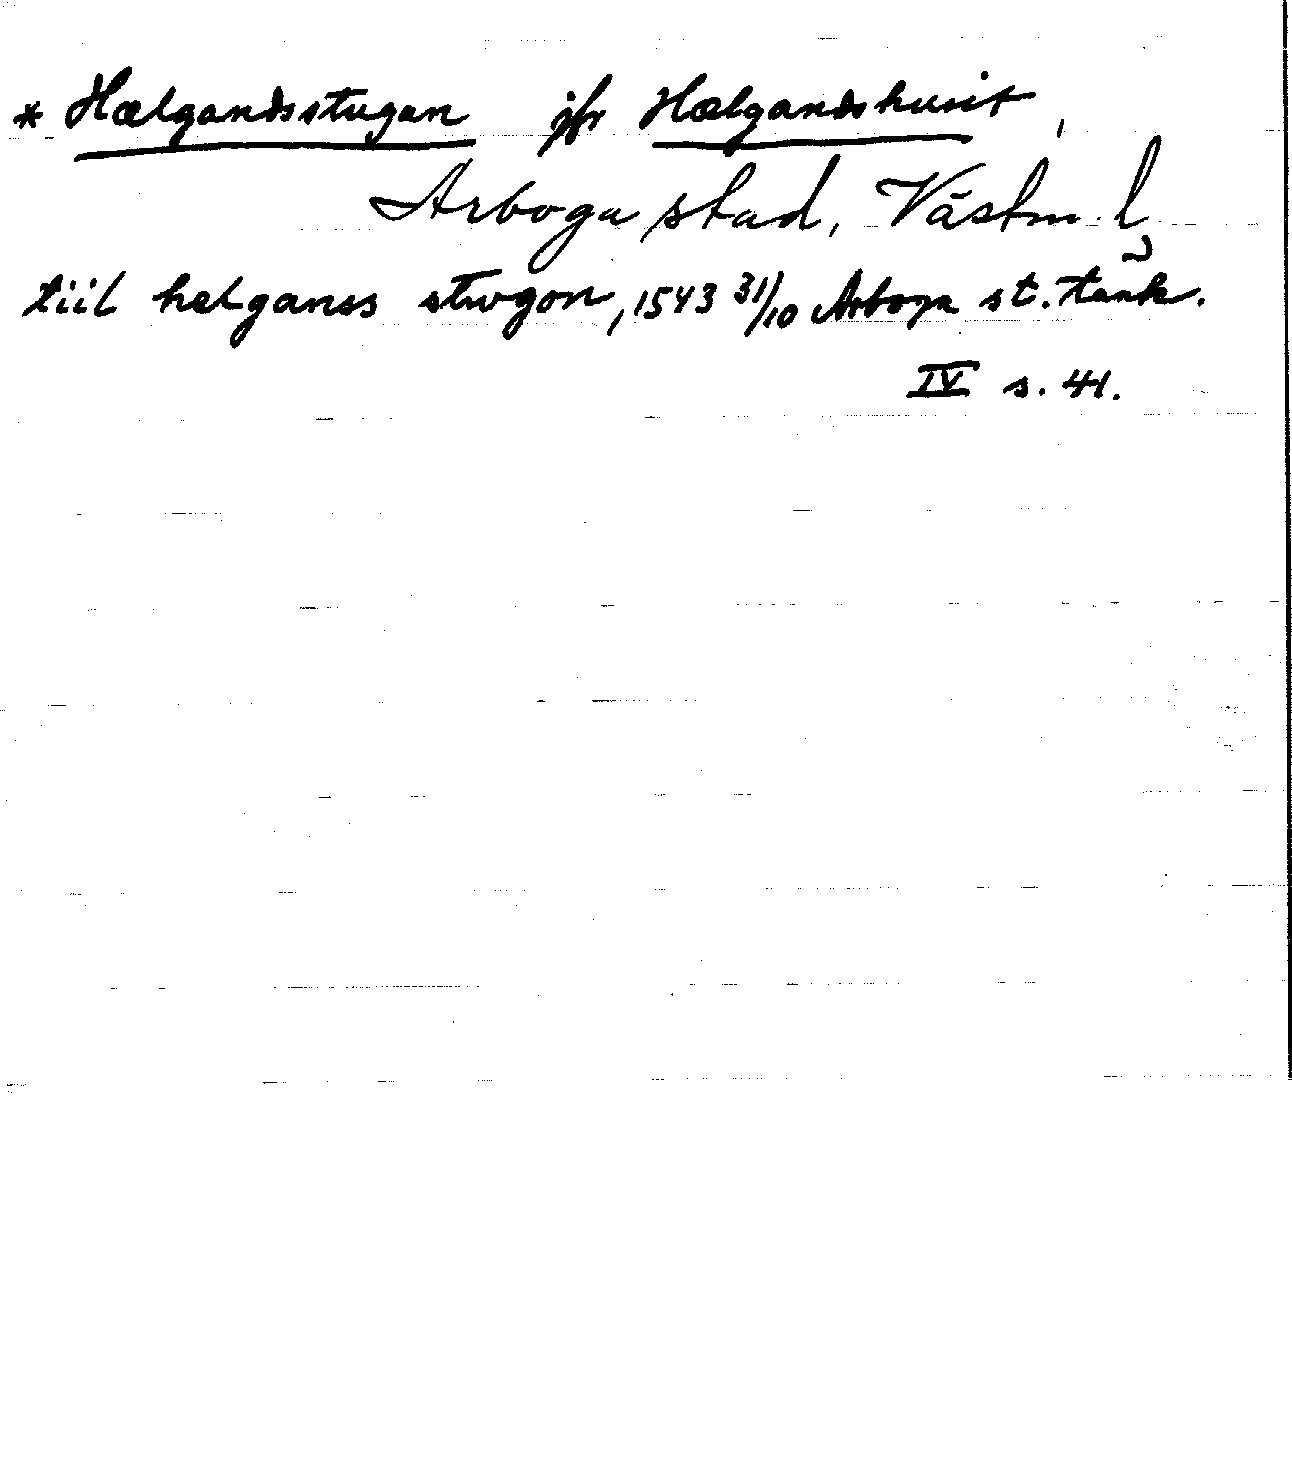 * Hælgandsstugan jfr Hælgandshusit,
Arboga stad, Västm. l.
tiil helganss stwgon, 1543 31/10 Arboga st. tänk.
IV s. 41.